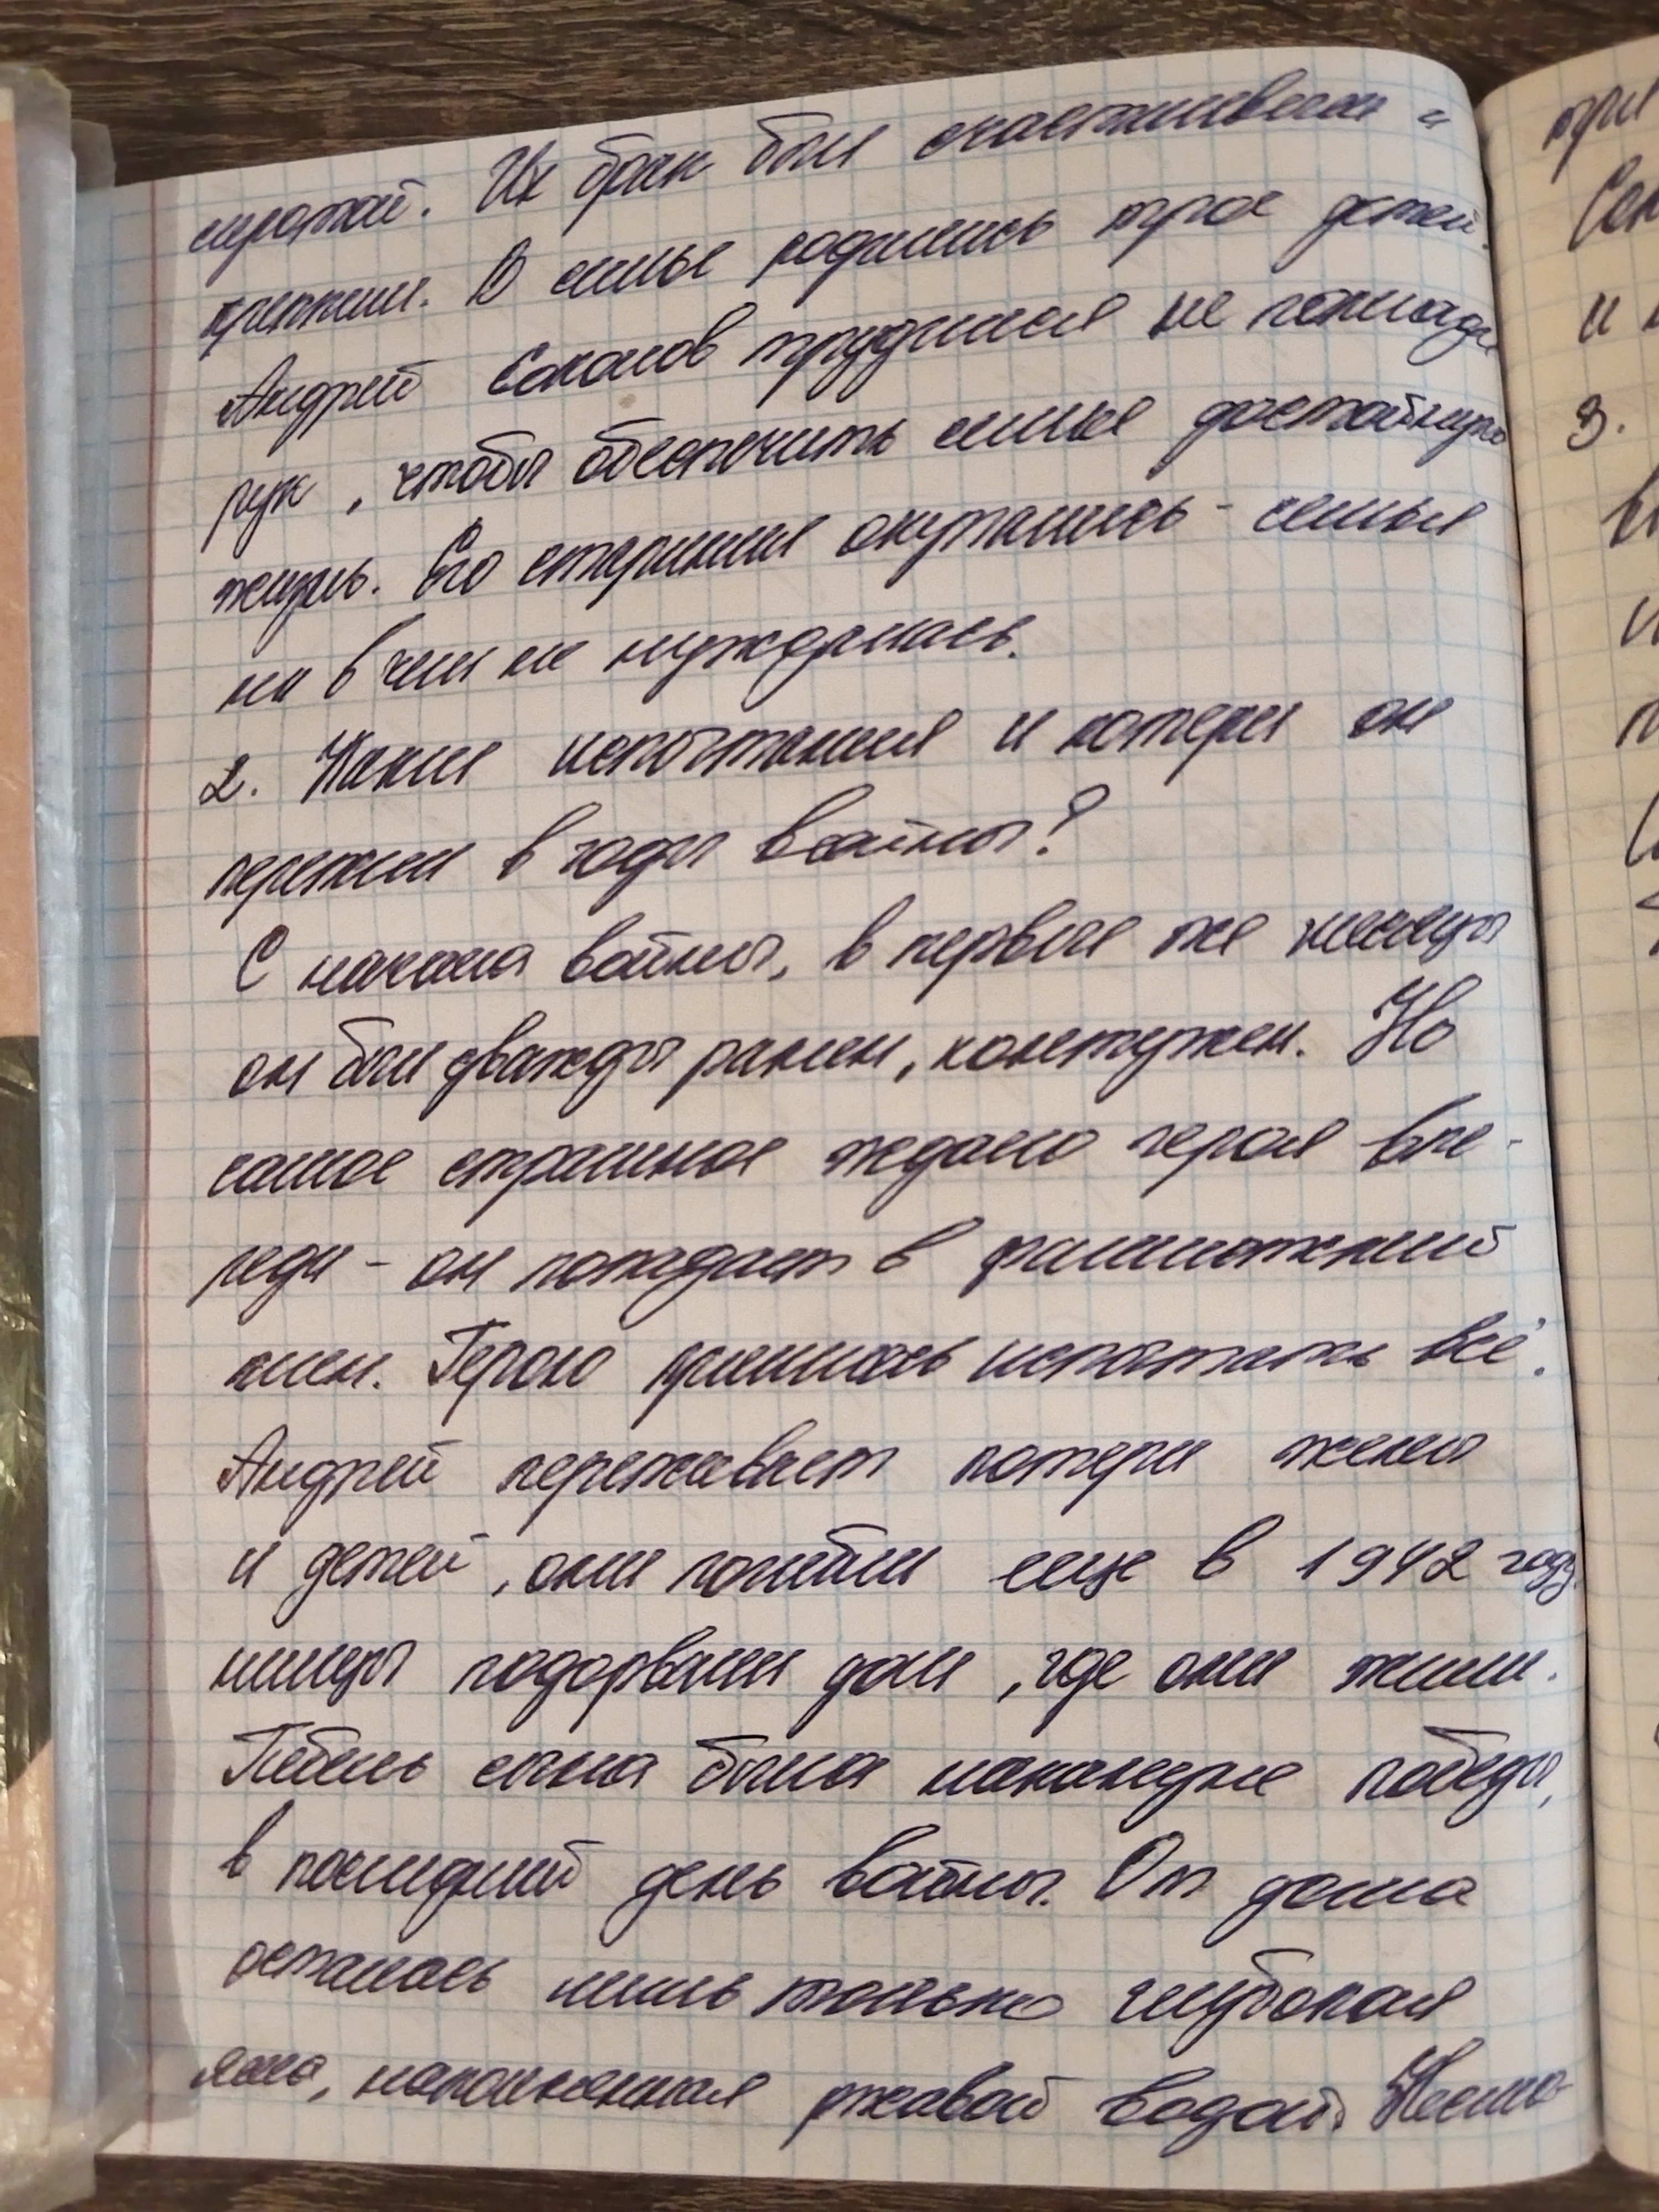 сиротой. Их брак был счастливым и
крепким. В семье родились трое детей.
Андрей Соколов трудился не покладая
рук, чтобы обеспечить семье достойную
жизнь. Его старания окупались - семья
ни в чем не нуждалась.
2. Какие испытания и потери он
пережил в годы войны?
С начала войны, в первые же месяцы
он был дважды ранен, контужен. Но
самое страшное ждало героя впе-
реди - он попадает в фашистский
плен. Герою пришлось испытать всё.
Андрей переживает потери жены
и детей, они погибли еще в 1942 году.
немцы подорвали дом, где они жили.
Гибель сына была накануне победы,
в последний день войны. От дома
осталась лишь только глубокая
яма, наполненная ржавой водой.
при
Сок
и
3.